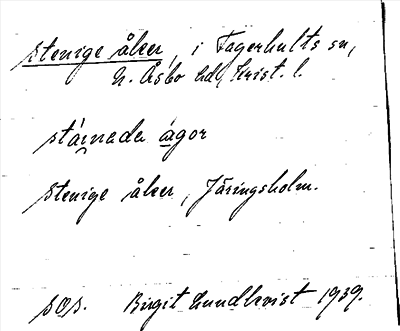 stenige åker, i Fagerhults sn,
N. Åsbo hd, Krist. l.
stárnada ágor
Stenige åker, Järingsholm.
sOs. Birgit Lundkvist 1939.